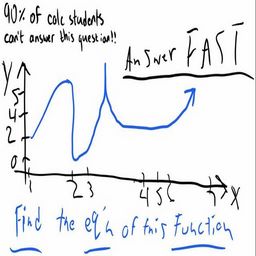 90% of calc students
can't answer this question!!
Answer FAST
Y
5
4
2
0
1 2 3 4 5 6 7 X
Find the eq'n of this Function